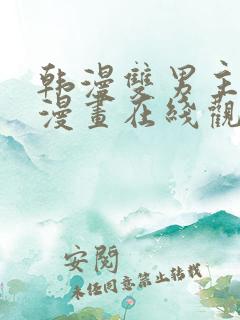 韩漫雙男主
漫畫在綫觀
安閱
未經同意禁止转载